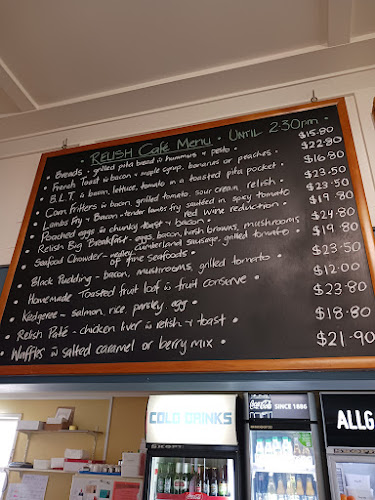 RELISH Café Menu · UNTIL 2:30pm ·
Breads - grilled pita bread w hummus & pesto · $15.80
French Toast w bacon & maple syrup, bananas or peaches · $22.80
B.L.T w bacon, lettuce, tomato in a toasted pita pocket · $16.80
Corn fritters w bacon, grilled tomato, sour cream, relish · $23.50
Lambs Fry & Bacon - tender lambs fry sautéed in spicy tomato red wine reduction · $23.50
Poached eggs w chunky toast & bacon · $19.80
Relish Big Breakfast - eggs, bacon, hash browns, mushrooms
cumberland sausage, grilled tomato · $24.80
Seafood Chowder - medley of fine seafoods · $19.80
Black Pudding - bacon, mushrooms, grilled tomato · $23.50
Homemade Toasted fruit loaf w fruit conserve · $12.00
Kedgeree - salmon, rice, parsley, egg · $23.80
Relish Paté - chicken liver w relish & toast · $18.80
Waffles w salted caramel or berry mix · $21.90
COLD DRINKS
Coca-Cola SINCE 1886
ALLG